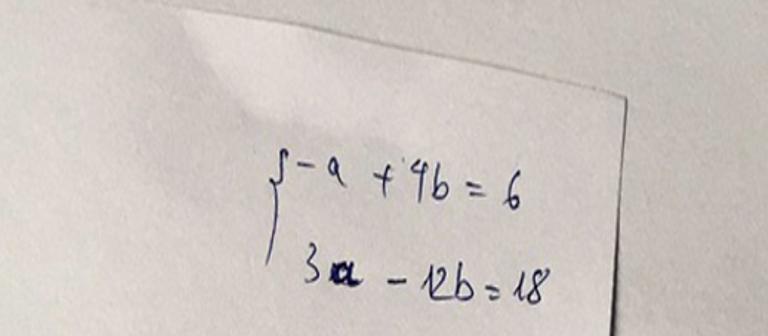 -a + 4b = 6
3a - 12b = 18